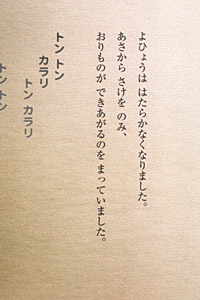 よひょうは はたらかなくなりました。
あさから さけを のみ、
おりものが できあがるのを まっていました。
トン トン
カラリ
トン カラリ
トン トン